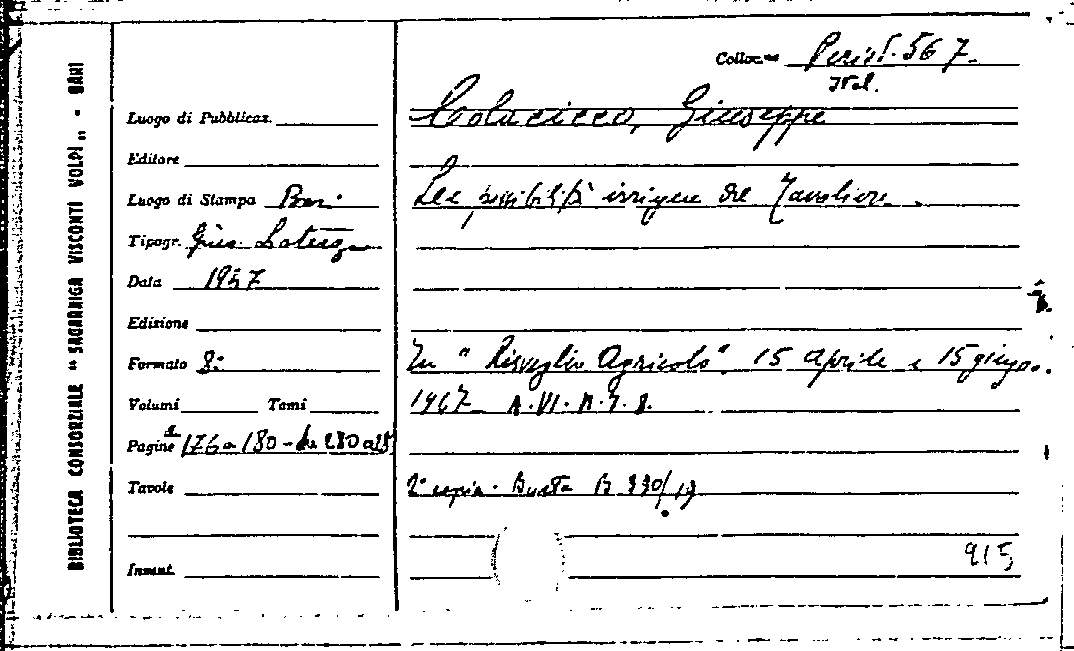 BIBLIOTECA CONSORZIALE "SAGARRIGA VISCONTI VOLPI" - BARI
Colloc.ne Period. 567
Ital.
Colacicco, Giuseppe
Luogo di Pubblicaz.
Editore
Luogo di Stampa Bari
Le possibilità irrigue del Tavoliere.
Tipogr. Gius. Laterza
Data 1947
Edizione
Formato 8:
In "Risveglio Agricolo". 15 Aprile e 15 giugno.
Volumi Tomi
1947
Pagine 176 a 180 - da 280
Tavole
2ª copia. Busta B 330/19
Invent.
915